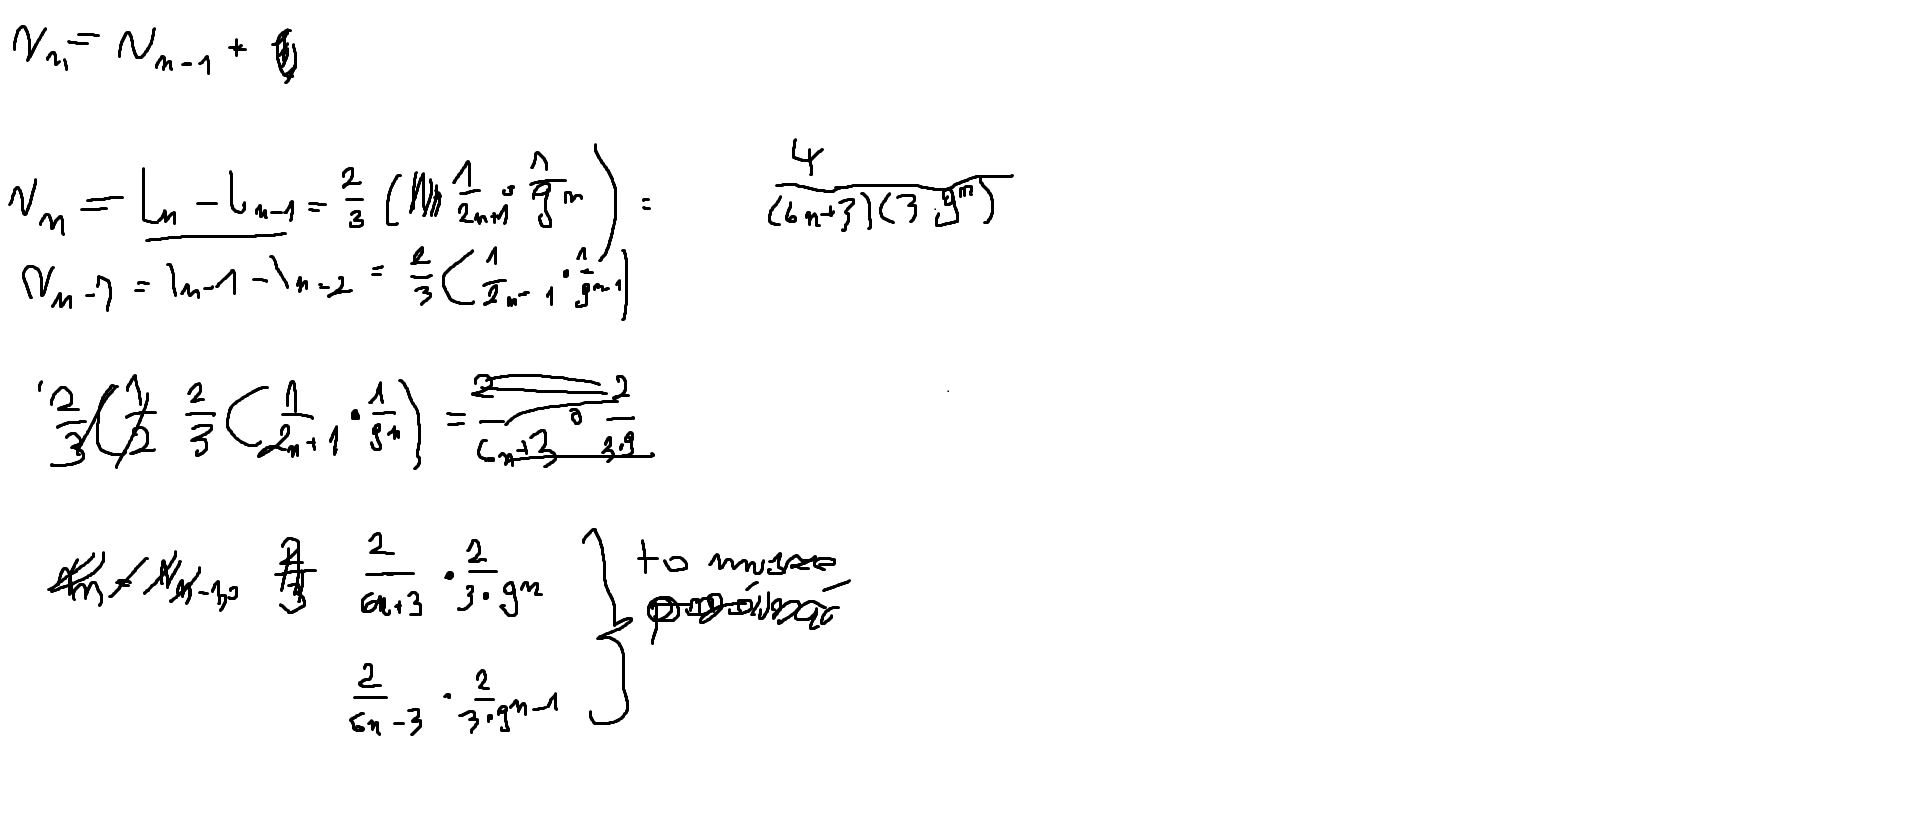 N_n = N_{n-1} +
N_n = L_n - L_{n-1} = 2/3 ( 1/(2n+1) · 1/9^n ) = 4/((6n+3)(3·9^n))
N_{n-1} = l_{n-1} - l_{n-2} = 2/3 ( 1/(2n-1) · 1/9^{n-1} )
2/3 ( 1/2 2/3 ( 1/(2n+1) · 1/9^n ) = 2/(6n+3) · 2/(3·9)
2/(6n+3) · 2/(3·9^n) } to
2/(6n-3) · 2/(3·9^{n-1})